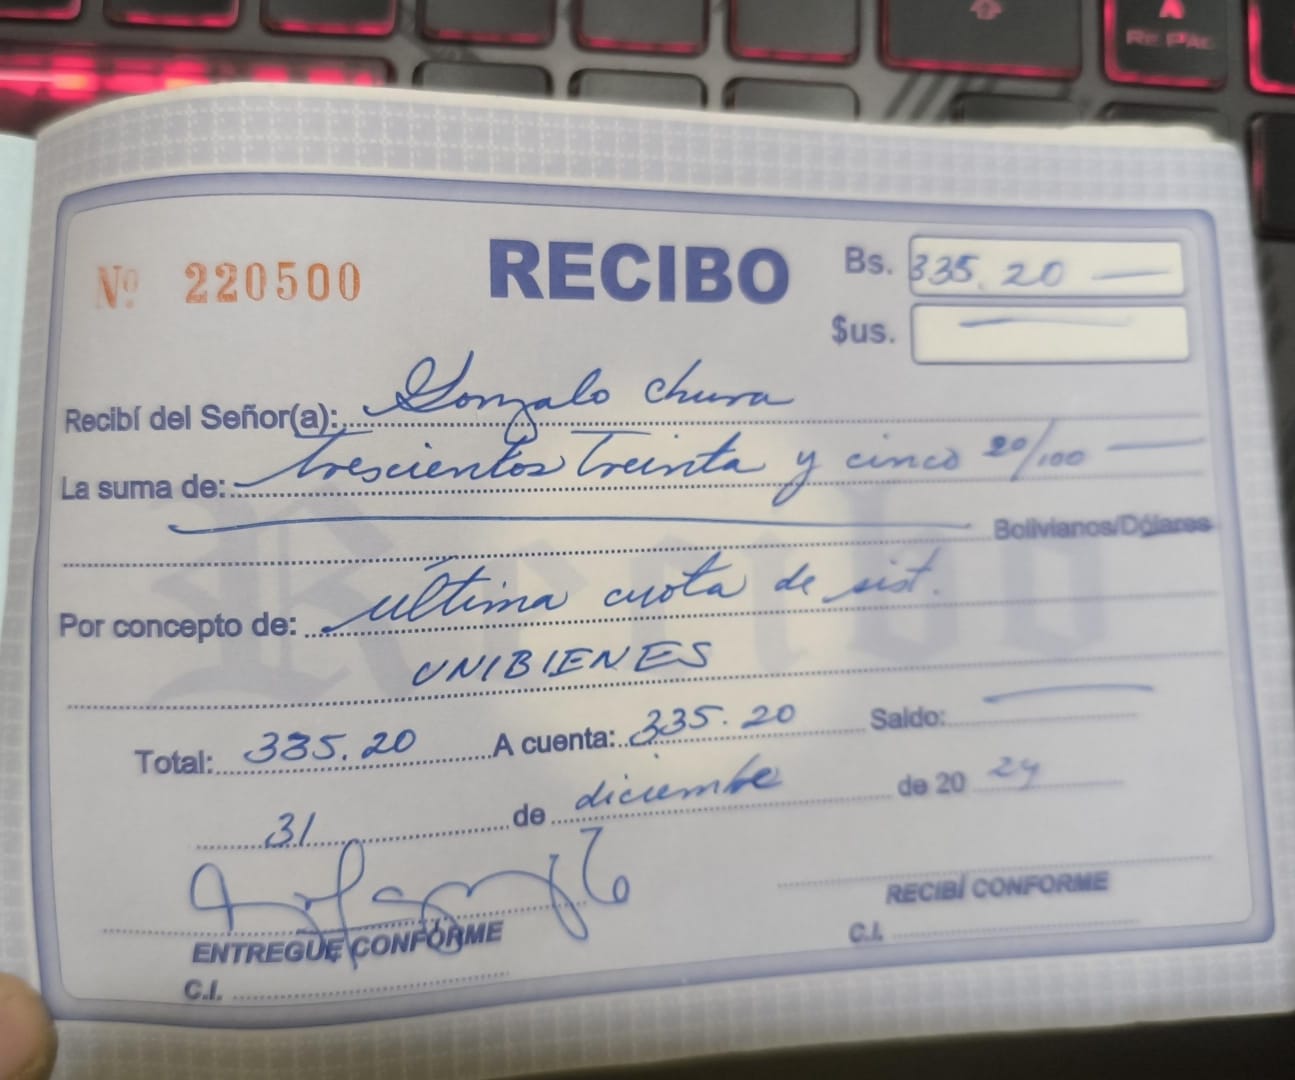 Nº 220500
RECIBO
Bs. 335.20
$us.
Recibí del Señor(a): Gonzalo Chura
La suma de: Trescientos Treinta y cinco 20/100
Bolivianos/Dólares
Por concepto de: última cuota de sist.
UNIBIENES
Total: 335.20 A cuenta: 335.20 Saldo:
31 de diciembre de 20 24
ENTREGUE CONFORME
RECIBÍ CONFORME
C.I.
C.I.